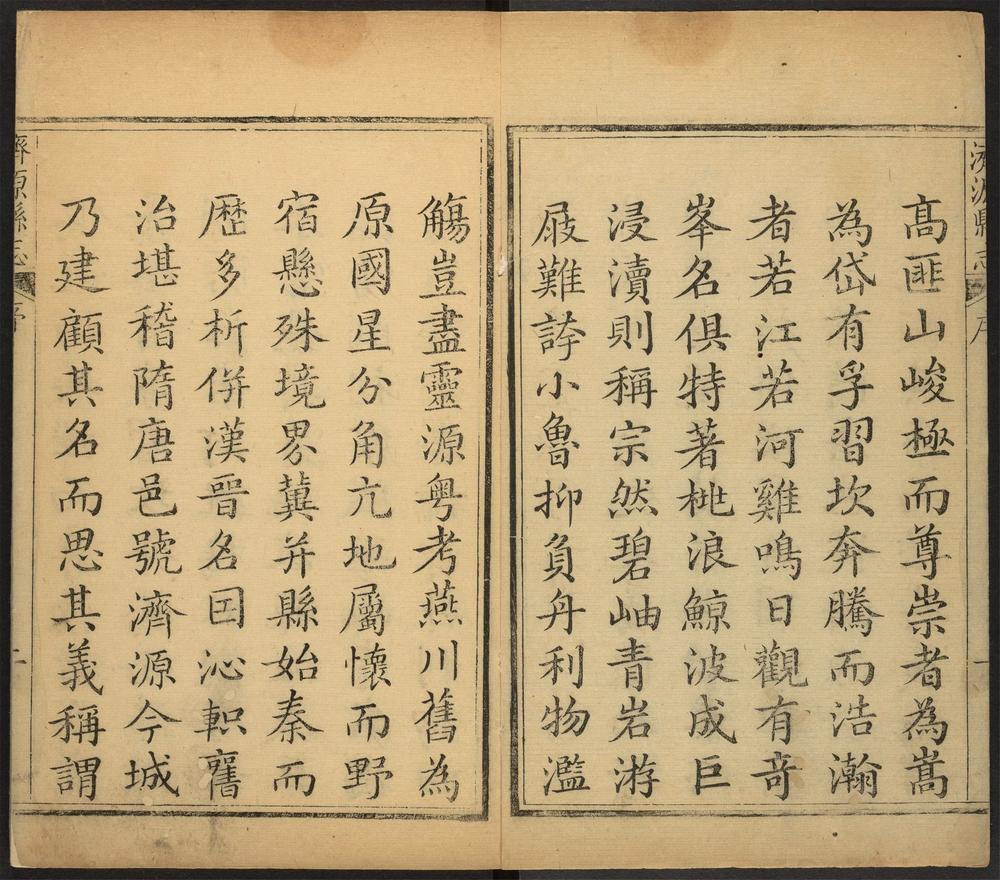 濟源縣志
序
一
高匪山峻極而尊崇者為嵩
為岱有孚習坎奔騰而浩瀚
者若江若河雞鳴日觀有奇
峯名俱特著桃浪鯨波成巨
浸瀆則稱宗然碧岫青岩游
屐難誇小魯抑負舟利物濫
觴豈盡靈源粵考燕川舊為
原國星分角亢地屬懷而野
宿懸殊境界冀并縣始秦而
歷多析併漢晉名因沁軹舊
治堪稽隋唐邑號濟源今城
乃建顧其名而思其義稱謂
濟源縣志
序
二